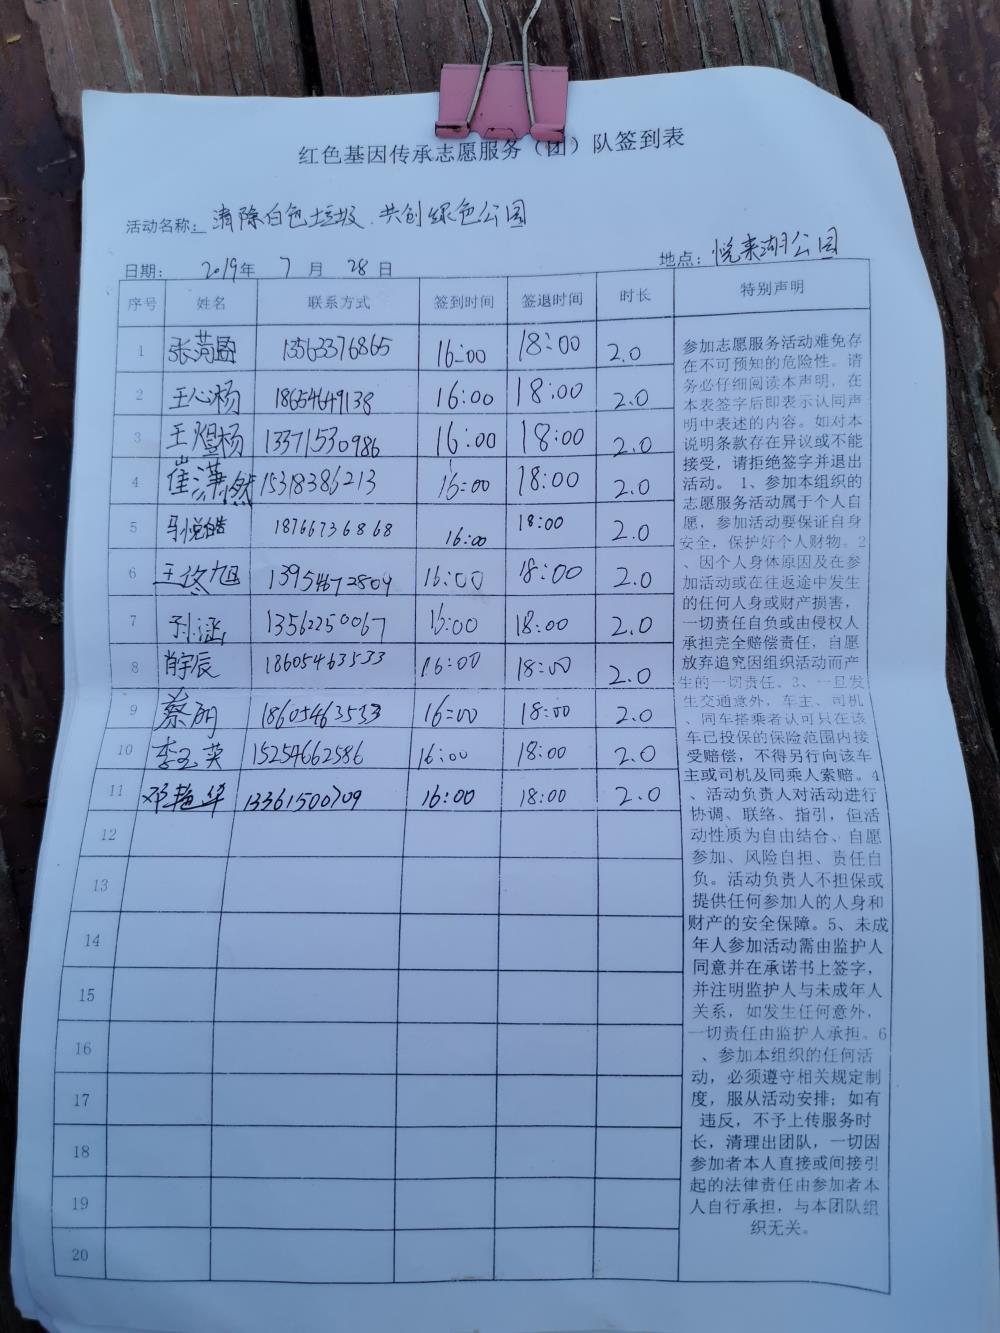 红色基因传承志愿服务（团）队签到表
活动名称：清除白色垃圾.共创绿色公园
日期： 2019年 7 月 28 日 地点：悦来湖公园
序号 姓名 联系方式 签到时间 签退时间 时长 特别声明
1 13563376865 16:00 18:00 2.0
2 王心杨 18654649138 16:00 18:00 2.0
3 王煜杨 13371530986 16:00 18:00 2.0
4 崔潇然 15318386213 16:00 18:00 2.0
5 马悦皓 18766736868 16:00 18:00 2.0
6 王佟旭 13954672809 16:00 18:00 2.0
7 孙涵 13562250067 16:00 18:00 2.0
8 肖宇辰 18605463533 16:00 18:00 2.0
9 蔡丽 18605463533 16:00 18:00 2.0
10 李玉英 15254662586 16:00 18:00 2.0
11 邓艳华 13361500709 16:00 18:00 2.0
12
13
14
15
16
17
18
19
20
参加志愿服务活动难免存
在不可预知的危险性。请
务必仔细阅读本声明，在
本表签字后即表示认同声
明中表述的内容。如对本
说明条款存在异议或不能
接受，请拒绝签字并退出
活动。 1、参加本组织的
志愿服务活动属于个人自
愿，参加活动要保证自身
安全，保护好个人财物。2
、因个人身体原因及在参
加活动或在往返途中发生
的任何人身或财产损害，
一切责任自负或由侵权人
承担完全赔偿责任，自愿
放弃追究因组织活动而产
生的一切责任。3、一旦发
生交通意外，车主、司机
、同车搭乘者认可只在该
车已投保的保险范围内接
受赔偿，不得另行向该车
主或司机及同乘人索赔。4
、活动负责人对活动进行
协调、联络、指引，但活
动性质为自由结合、自愿
参加、风险自担、责任自
负。活动负责人不担保或
提供任何参加人的人身和
财产的安全保障。5、未成
年人参加活动需由监护人
同意并在承诺书上签字，
并注明监护人与未成年人
关系，如发生任何意外，
一切责任由监护人承担。6
、参加本组织的任何活
动，必须遵守相关规定制
度，服从活动安排；如有
违反，不予上传服务时
长，清理出团队，一切因
参加者本人直接或间接引
起的法律责任由参加者本
人自行承担，与本团队组
织无关。